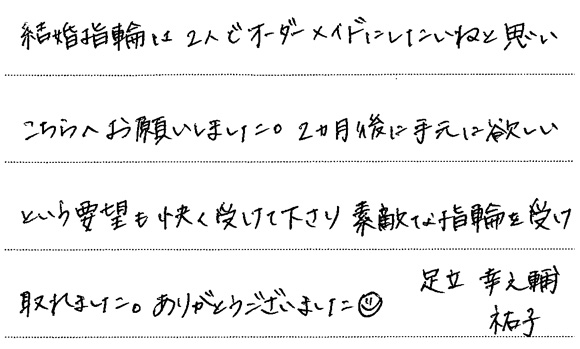 結婚指輪は2人でオーダーメイドにしたいねと思い
こちらへお願いしました。2カ月後に手元に欲しい
という要望も快く受けて下さり素敵な指輪を受け
取れました。ありがとうございました☺
足立 幸之輔
祐子